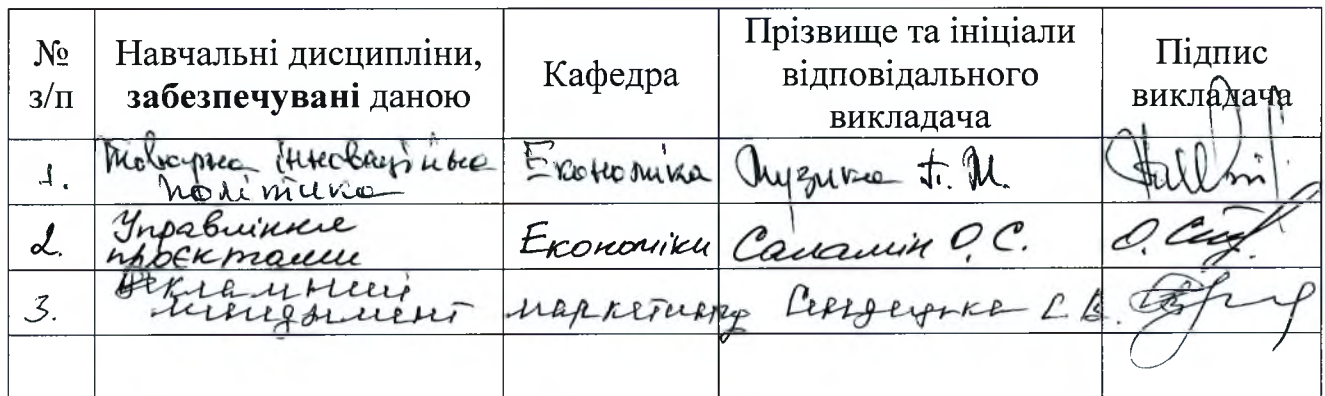 № з/п
Навчальні дисципліни, забезпечувані даною
Кафедра
Прізвище та ініціали відповідального викладача
Підпис викладача
1. Товарна інноваційна політика Економіка Музика П. М.
2. Управління проєктами Економіки Саламін О. С.
3. Рекламний менеджмент маркетингу